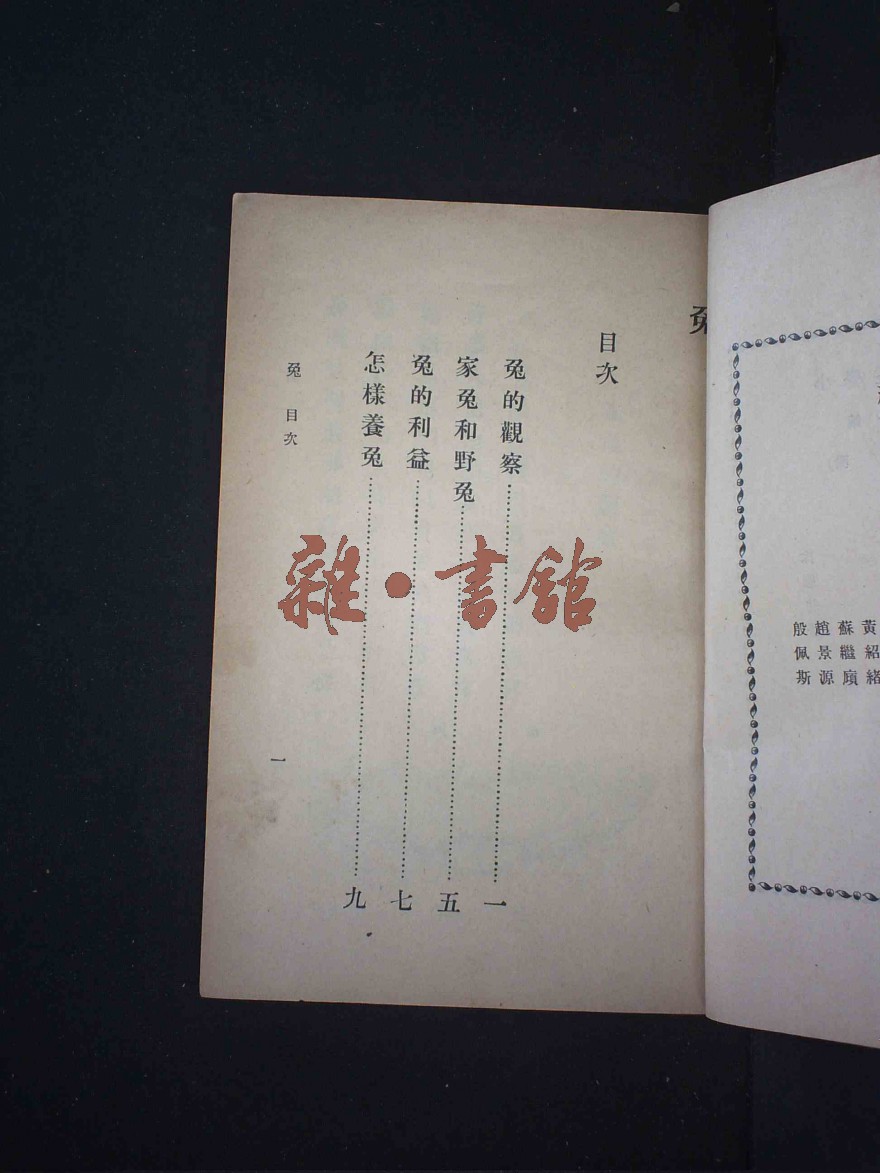 兔
目次
兔的觀察……一
家兔和野兔……五
兔的利益……七
怎樣養兔……九
兔 目次
一
雜·書館
蘇繼廎
趙景源
殷佩斯